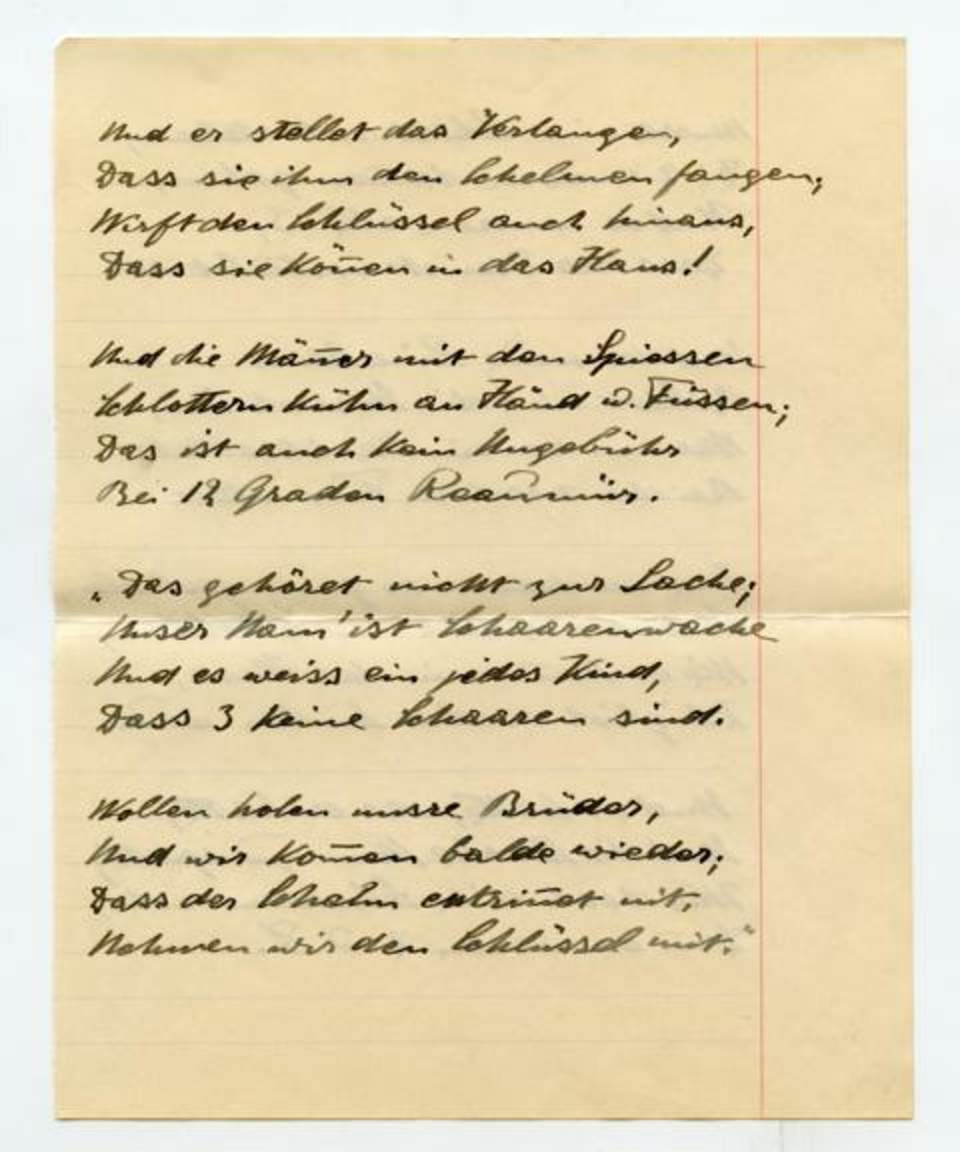 Und er stellet das Verlangen,
Dass sie ihm den Schelmen fangen;
Wirft den Schlüssel auch hinaus,
Dass sie Kön̄en in das Haus!
Und die Män̄er mit den Spiessen
Schlottern Kühn an Händ u. Füssen;
Das ist auch Kein Ungebühr
Bei 12 Graden Reaumür.
„Das gehöret nicht zur Sache;
Unser Nam' ist Schaarenwache
Und es weiss ein jedes Kind,
Dass 3 Keine Schaaren sind.
Wollen holen unsre Brüder,
Und wir Kom̄en balde wieder;
Dass der Schelm entrin̄et nit,
Nehmen wir den Schlüssel mit."